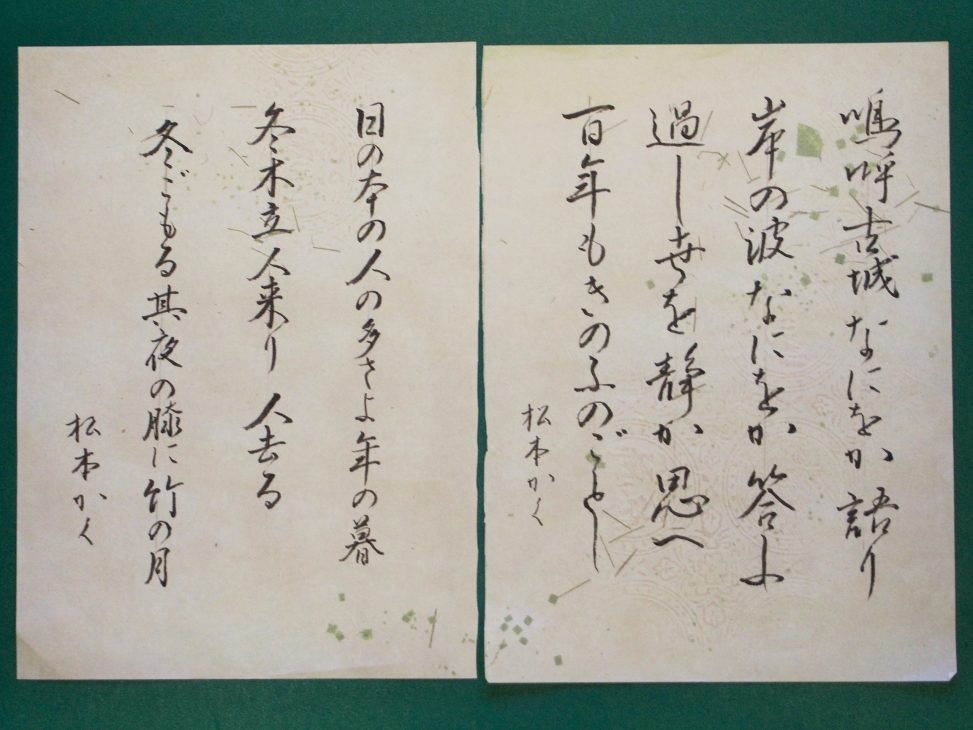 嗚呼古城なにをか語り
岸の波なにをか答ふ
過し世を静か思へ
百年もきのふのごとし
松本かく
日の本の人の多さよ年の暮
冬木立人来り人去る
冬ごもる其夜の膝に竹の月
松本かく